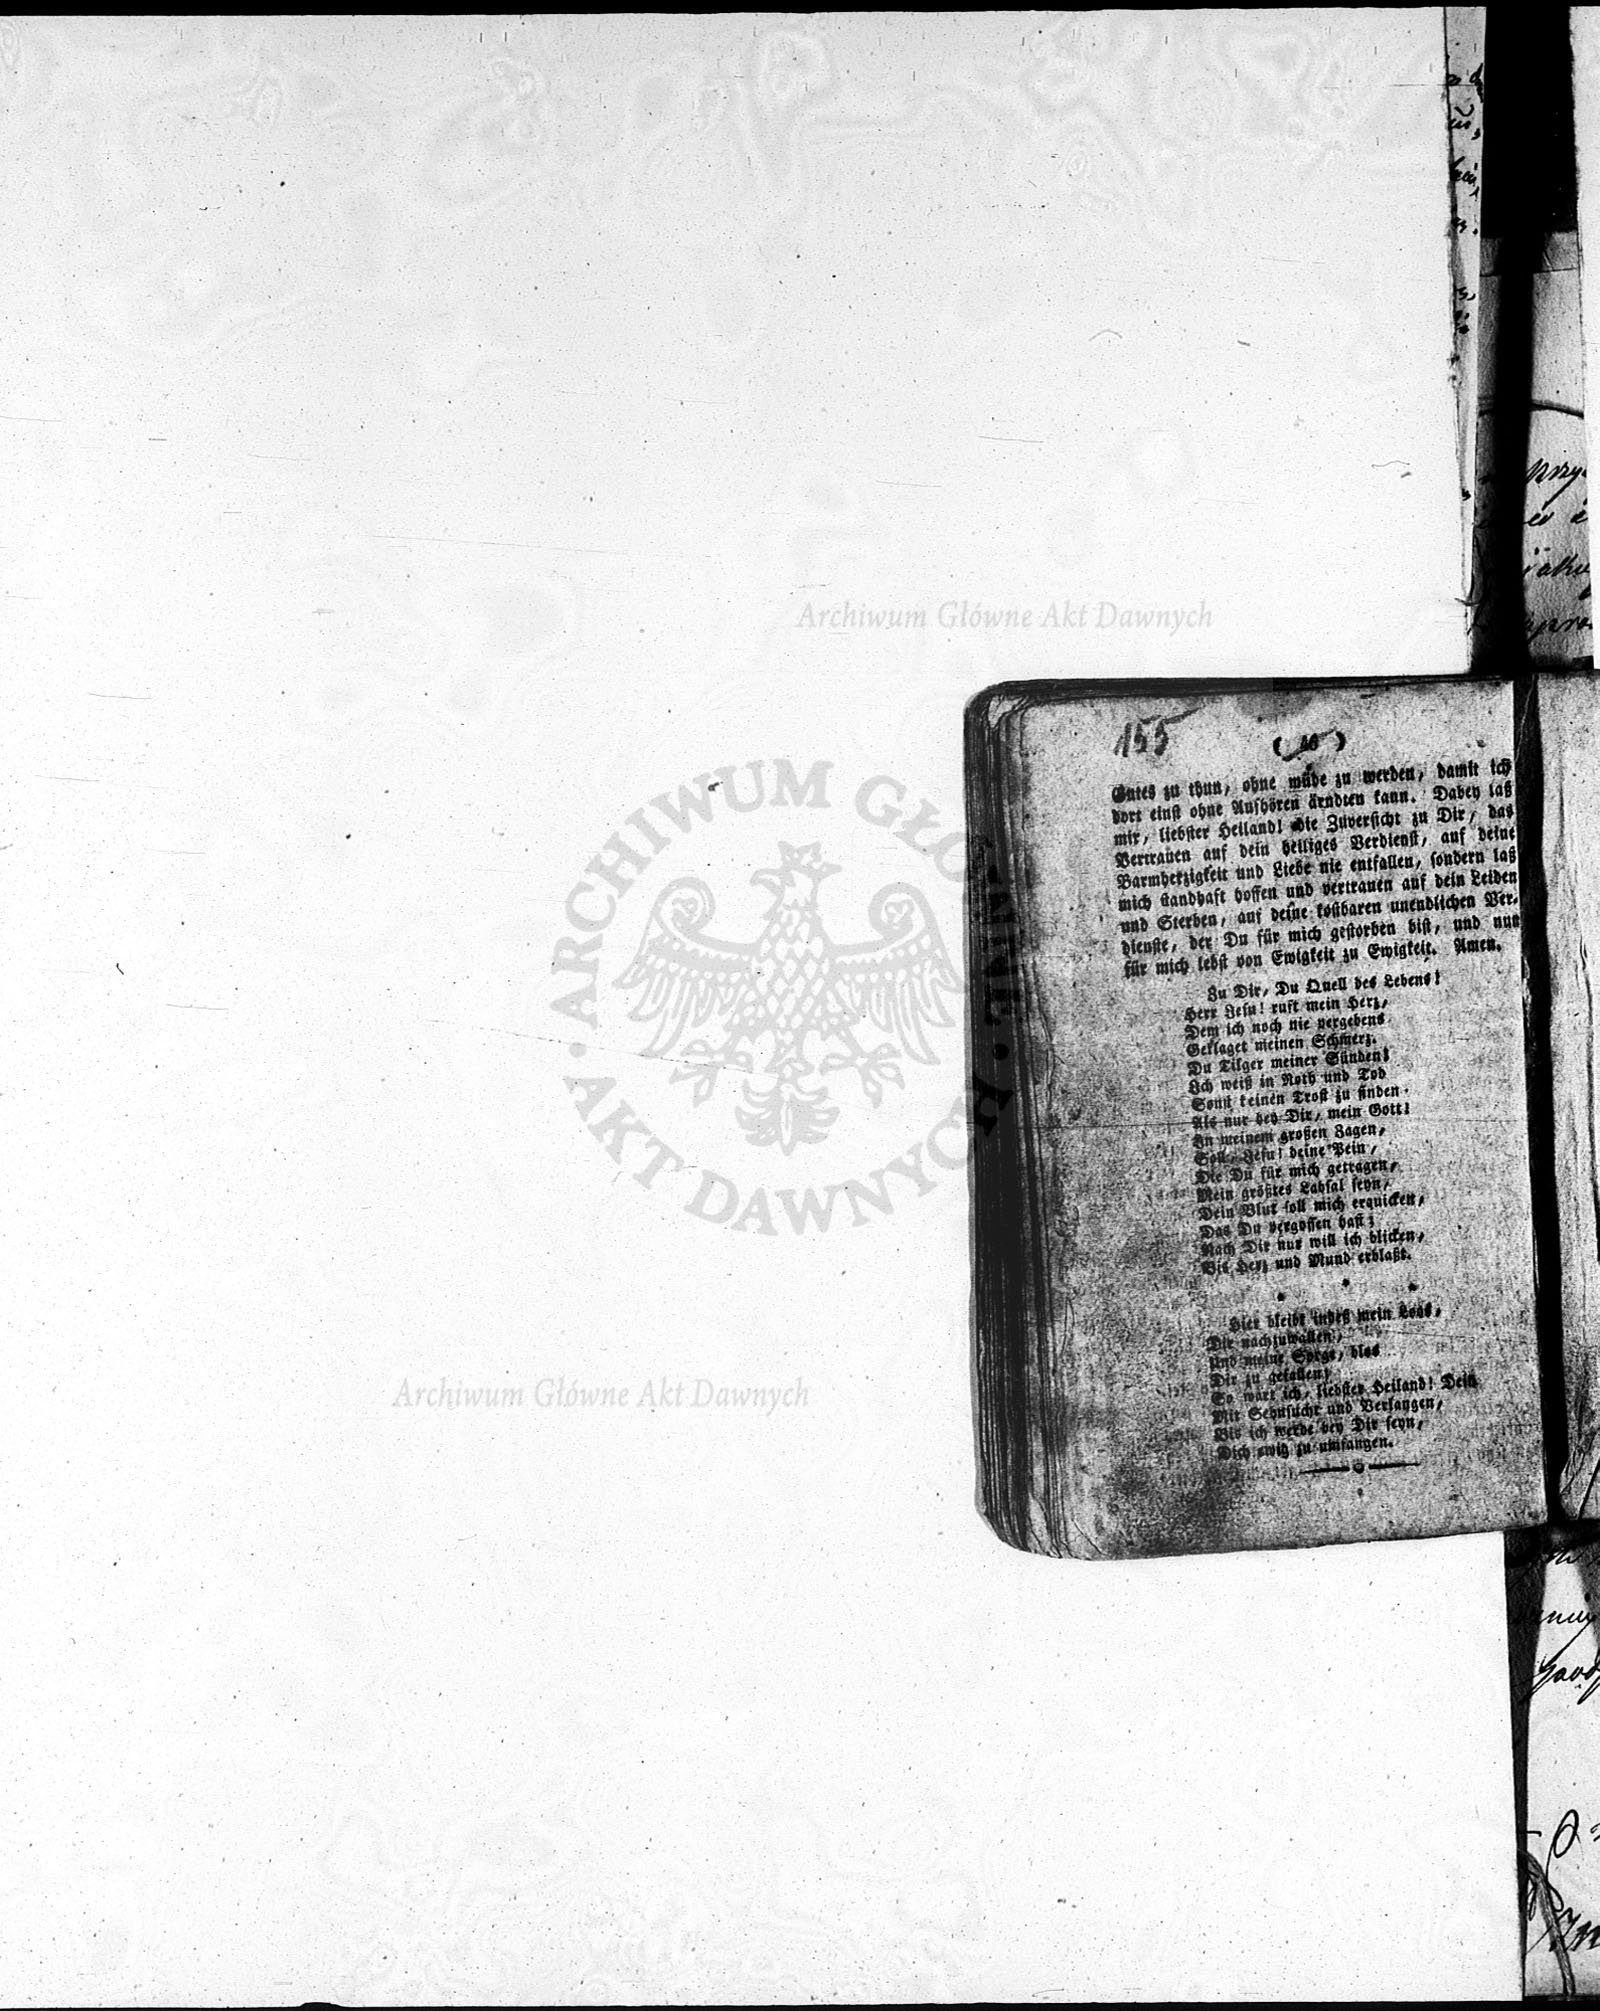 155
( 40 )
Gutes zu thun, ohne müde zu werden, damit ich
dort einst ohne Aufhören ärndten kann. Dabey laß
mir, liebster Heiland! die Zuversicht zu Dir, das
Vertrauen auf dein heiliges Verdienst, auf deine
Barmherzigkeit und Liebe nie entfallen, sondern laß
mich standhaft hoffen und vertrauen auf dein Leiden
und Sterben, auf deine kostbaren unendlichen Ver-
dienste, der Du für mich gestorben bist, und nun
für mich lebst von Ewigkeit zu Ewigkeit. Amen.
Zu Dir, Du Quell des Lebens!
Herr Jesu! ruft mein Herz,
Dem ich noch nie vergebens
Geklaget meinen Schmerz.
Du Tilger meiner Sünden!
Ich weiß in Noth und Tod
Sonst keinen Trost zu finden.
Als nur bey Dir, mein Gott!
In meinem großen Zagen,
Soll, Jesu! deine Pein,
Die Du für mich getragen,
Mein größtes Labsal seyn,
Dein Blut soll mich erquicken,
Das Du vergossen hast;
Nach Dir nur will ich blicken,
Bis Herz und Mund erblaßt.
* * *
Hier bleibt indeß mein Loos,
Dir nachzuwallen,
Und meine Sorge, blos
Dir zu gefallen;
So wart ich, liebster Heiland! Dein
Mit Sehnsucht und Verlangen,
Bis ich werde bey Dir seyn,
Dich ewig zu umfangen.
Archiwum Główne Akt Dawnych
ARCHIWUM GŁÓWNE • AKT DAWNYCH •
Archiwum Główne Akt Dawnych